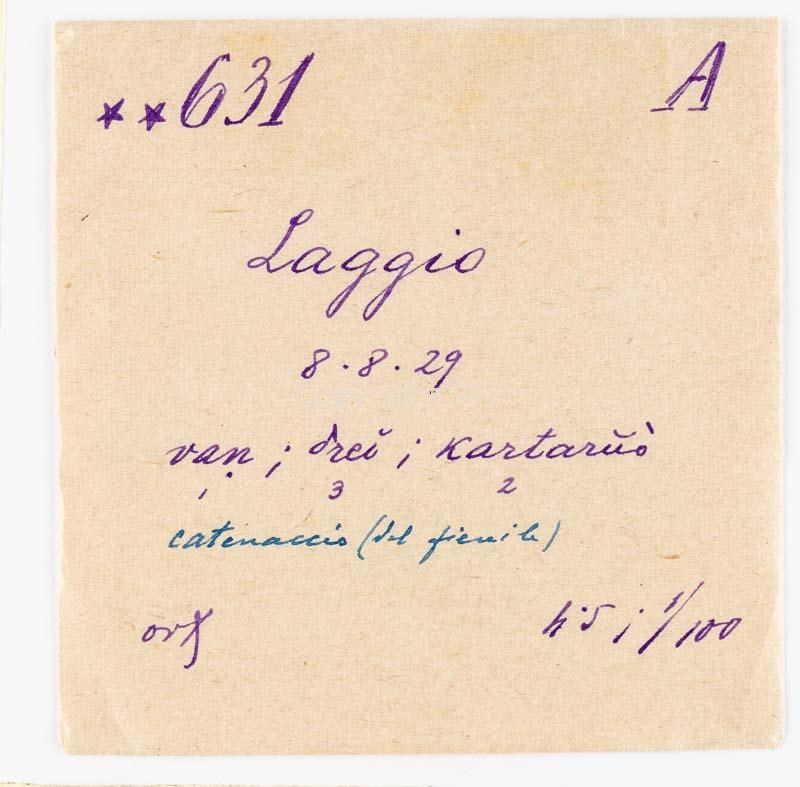 **631 A
Laggio
8.8.29
van ; dreĭ ; kartarŭò
1 3 2
catenaccio (del fienile)
4.5 ; 1/100